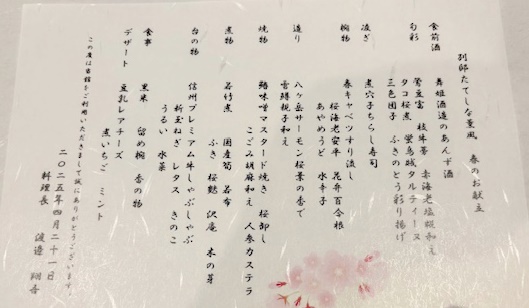 別邸たてしな薫風　春のお献立
食前酒　舞姫酒造のあんず酒
旬彩　鶯豆富　枝牛蒡　赤海老塩麹和え
タコ桜煮　蛍烏賊タルティーヌ
三色団子　ふきのとう彩り揚げ
凌ぎ　煮穴子ちらし寿司
椀物　春キャベツすり流し
桜海老安平　花弁百合根
あやめうど　水辛子
造り　八ヶ岳サーモン桜葉の香で
雪鱒親子和え
焼物　鰆味噌マスタード焼き　桜卸し
こごみ胡麻和え　人参カステラ
煮物　若竹煮　国産筍　若布
ふき　桜麩　沢庵　木の芽
台の物　信州プレミアム牛しゃぶしゃぶ
新玉ねぎ　レタス　きのこ
うるい　水菜
食事　黒米　留め椀　香の物
デザート　豆乳レアチーズ
煮いちご　ミント
この度は当館をご利用いただきまして誠にありがとうございます。
二〇二五年四月二十一日
料理長　渡邉　翔吾